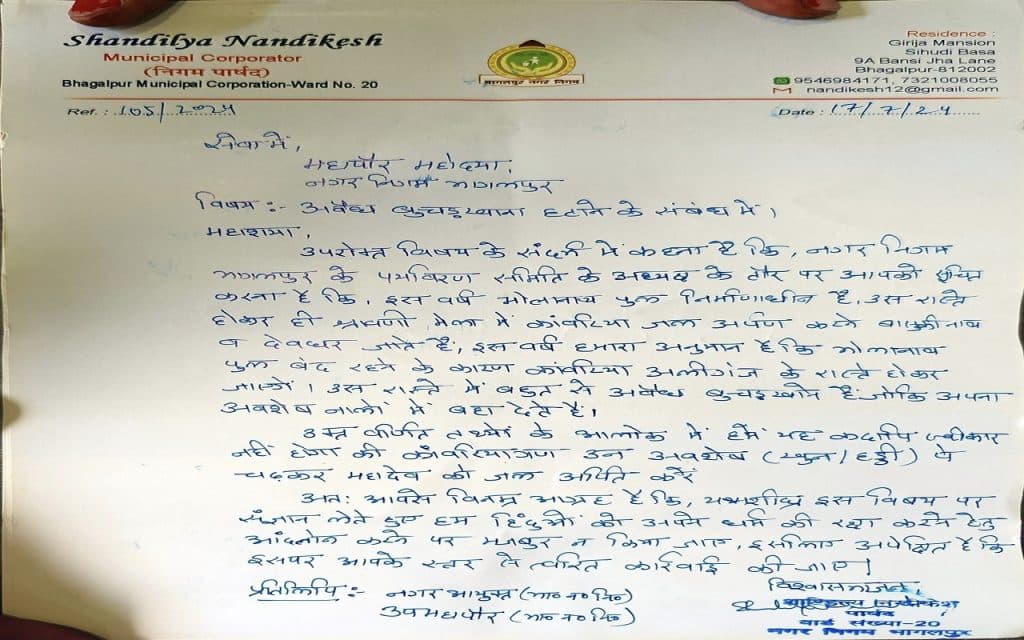 Shandilya Nandikesh
Municipal Corporator
(निगम पार्षद)
Bhagalpur Municipal Corporation-Ward No. 20
भागलपुर नगर निगम
Residence :
Girija Mansion
Sihudi Basa
9A Bansi Jha Lane
Bhagalpur-812002
9546984171, 7321008055
nandikesh12@gmail.com
Ref. : 105/2024
Date : 17/7/24
सेवा में,
महापौर महोदया,
नगर निगम भागलपुर
विषय :- अवैध बुचड़खाना हटाने के संबंध में।
महाशया,
उपरोक्त विषय के संदर्भ में कहना है कि, नगर निगम
भागलपुर के पर्यावरण समिति के अध्यक्ष के तौर पर आपको सूचित
करना है कि, इस वर्ष भोलानाथ पुल निर्माणाधीन है, उस रास्ते
होकर ही श्रावणी मेला में कांवरिया जल अर्पण करने बासुकीनाथ
व देवघर जाते हैं, इस वर्ष हमारा अनुमान है कि भोलानाथ
पुल बंद रहने के कारण कांवरिया अलीगंज के रास्ते होकर
जाएंगे। उस रास्ते में बहुत से अवैध बुचड़खाने है जोकि अपना
अवशेष नालों में बहा देते हैं।
उक्त वर्णित तथ्यों के आलोक में हमें यह कदापि स्वीकार
नहीं होगा की काँवरियागण उन अवशेष (खुन/हड्डी) पे
चढ़कर महादेव को जल अर्पित करें
अतः आपसे विनम्र आग्रह है कि, यथाशीघ्र इस विषय पर
संज्ञान लेते हुए हम हिंदुओं को अपने धर्म की रक्षा करने हेतु
आंदलोन करने पर मजबुर न किया जाए, इसलिए अपेक्षित है कि
इसपर आपके स्तर से त्वरित कारवाई की जाए।
प्रतिलिपि :- नगर आयुक्त (भा० न० नि०)
उपमहापौर (भा० न० नि०)
विश्वासभाजन
शांडिल्य नन्दीकेश
पार्षद
वार्ड संख्या-20
नगर निगम भागलपुर